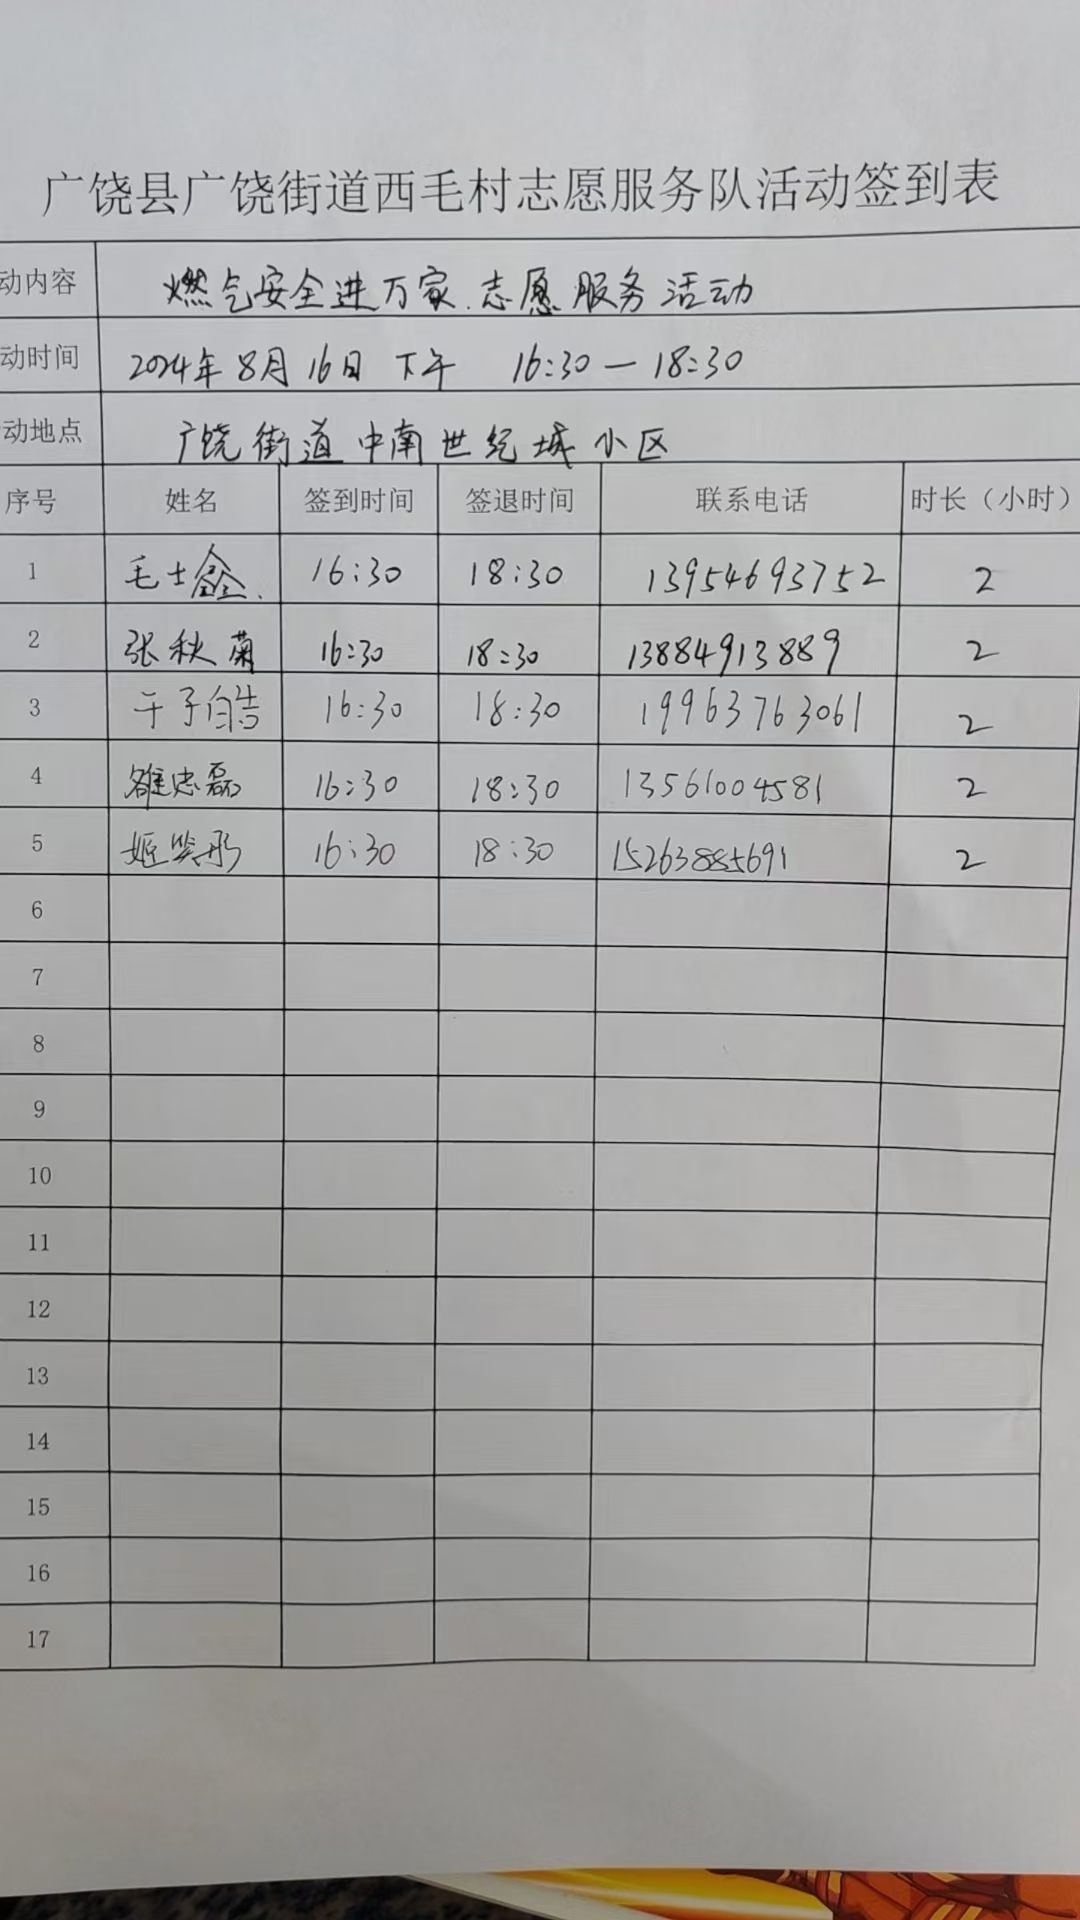 广饶县广饶街道西毛村志愿服务队活动签到表
动内容 燃气安全进万家.志愿服务活动
动时间 2024年8月16日 下午 16:30—18:30
动地点 广饶街道中南世纪城小区
序号 姓名 签到时间 签退时间 联系电话 时长（小时）
1 毛士鑫. 16:30 18:30 13954693752 2
2 张秋菊 16:30 18:30 13884913889 2
3 于子皓 16:30 18:30 19963763061 2
4 忠磊 16:30 18:30 13561004581 2
5 姬彤 16:30 18:30 15263885691 2
6
7
8
9
10
11
12
13
14
15
16
17